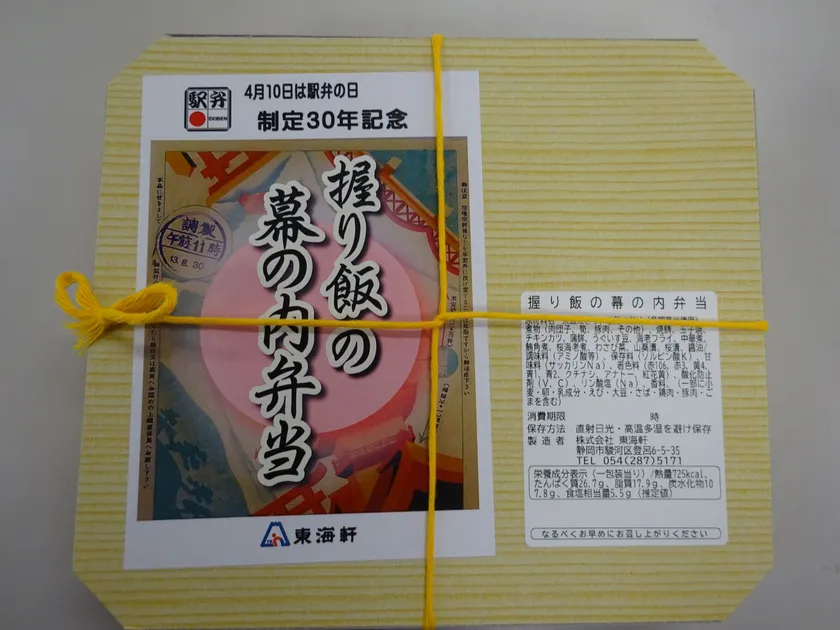 駅弁
EKIBEN
4月10日は駅弁の日
制定30年記念
握り飯の
幕の内弁当
調製
午前11時
13.8.30
東海軒
握り飯の幕の内弁当
煮物(肉団子、筍、豚肉、その他)、焼鯖、玉子焼、
チキンカツ、蒲鉾、うぐいす豆、海老フライ、中華煮、
鮪角煮、桜海老煮、わさび菜、山葵漬、桜漬、醤油/
調味料(アミノ酸等)、保存料(ソルビン酸K)、甘
味料(サッカリンNa)、着色料(赤106、赤3、黄4、
青1、青2、クチナシ、アナトー、紅花黄)、酸化防止
剤(V.C)、リン酸塩(Na)、香料、(一部に小
麦・卵・乳成分・えび・大豆・さば・鶏肉・豚肉・ご
まを含む)
消費期限 時
保存方法 直射日光・高温多湿を避け保存
製造者 株式会社 東海軒
静岡市駿河区登呂6-5-35
TEL 054(287)5171
栄養成分表示(一包装当り)/熱量725kcal、
たんぱく質26.7g、脂質17.9g、炭水化物10
7.8g、食塩相当量5.5g(推定値)
なるべくお早めにお召し上がりください